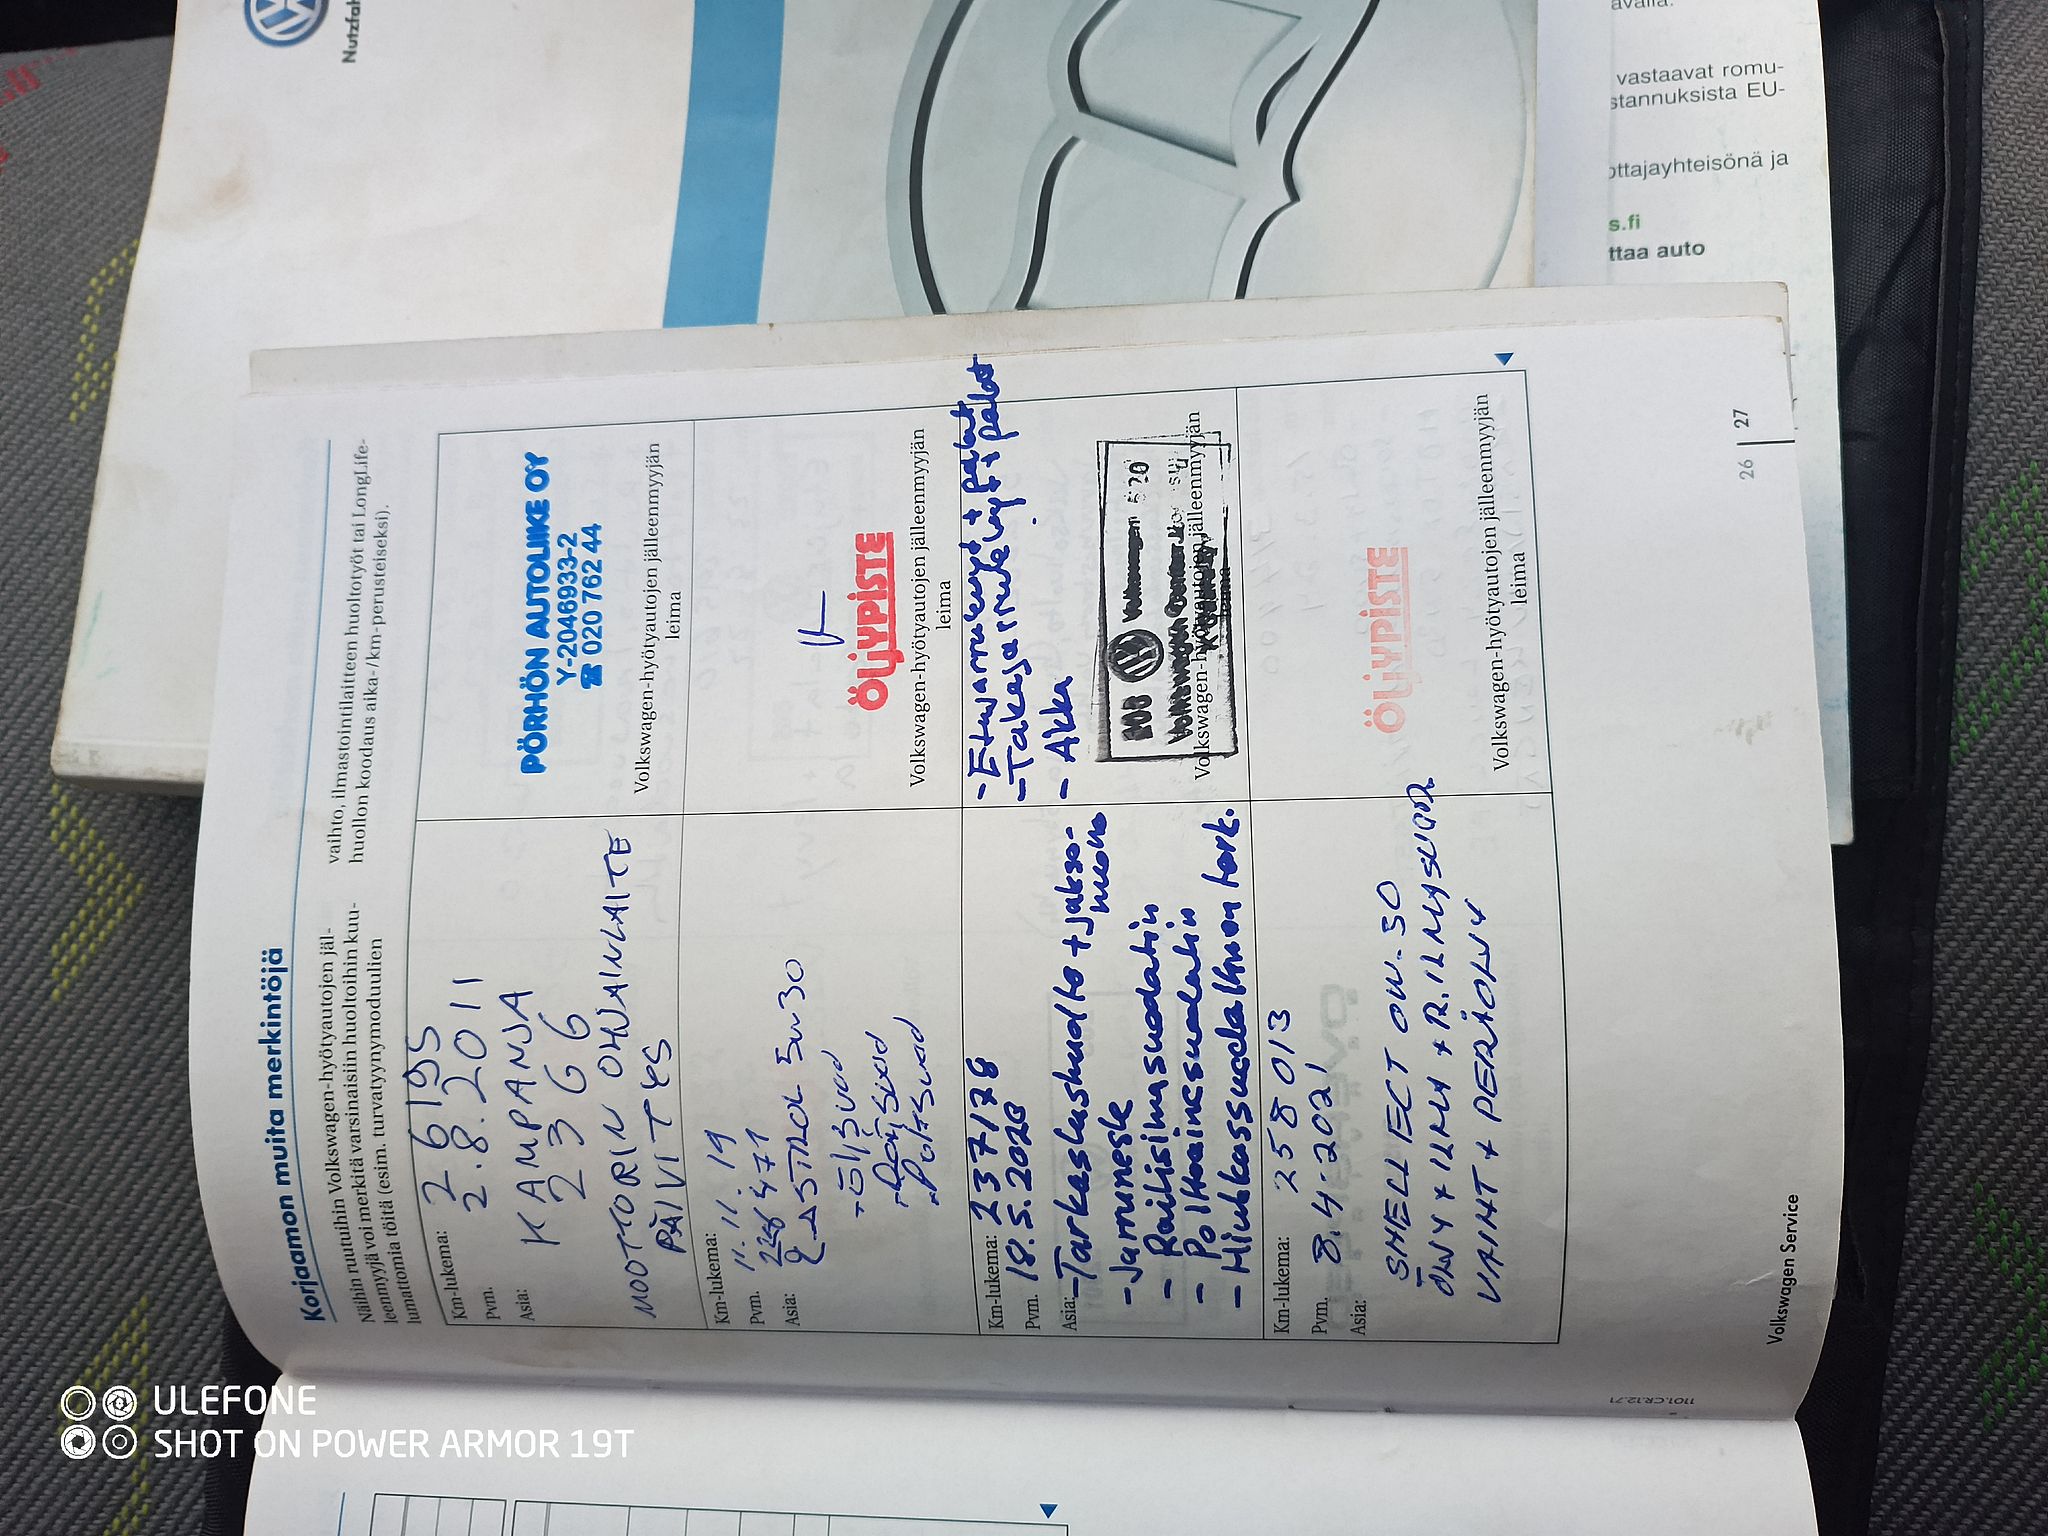 Nutzfah
avalla.
vastaavat romu-
stannuksista EU-
ottajayhteisönä ja
s.fi
ttaa auto
Korjaamon muita merkintöjä
Näihin ruutuihin Volkswagen-hyötyautojen jäl-
leenmyyjä voi merkitä varsinaisiin huoltoihin kuu-
lumattomia töitä (esim. turvatyynymoduulien
vaihto, ilmastointilaitteen huoltotyöt tai LongLife-
huollon koodaus aika-/km-perusteiseksi).
Km-lukema: 26195
Pvm. 2.8.2011
Asia: KAMPANJA
2366
MOOTTORIN OHJAINLAITE
PÄIVITYS
PÖRHÖN AUTOLIIKE OY
Y-2046933-2
☎ 020 762 44
Volkswagen-hyötyautojen jälleenmyyjän
leima
Km-lukema: 11.11.19
Pvm.
Asia: 5w30
ÖLJYPISTE
Volkswagen-hyötyautojen jälleenmyyjän
leima
Km-lukema: 237178
Pvm. 18.5.2020
Asia: -Tarkastushuolto + jakso-
huolto
- Jarruneste
- Raitisilmasuodatin
- Polttoainesuodatin
- Hiukkassuodattimen tark.
- Etujarrulevyt + palat
- Takajarrulevyt + palat
- Akku
Volkswagen-hyötyautojen jälleenmyyjän
leima
Km-lukema: 258013
Pvm. 8.4.2021
Asia:
SHELL ECT 0W-30
ÖLJY + ILMA + R.ILMASUOD.
VAIHT +
ÖLJYPISTE
Volkswagen-hyötyautojen jälleenmyyjän
leima
Volkswagen Service
26 | 27
1101.CR.12.71
ULEFONE
SHOT ON POWER ARMOR 19T